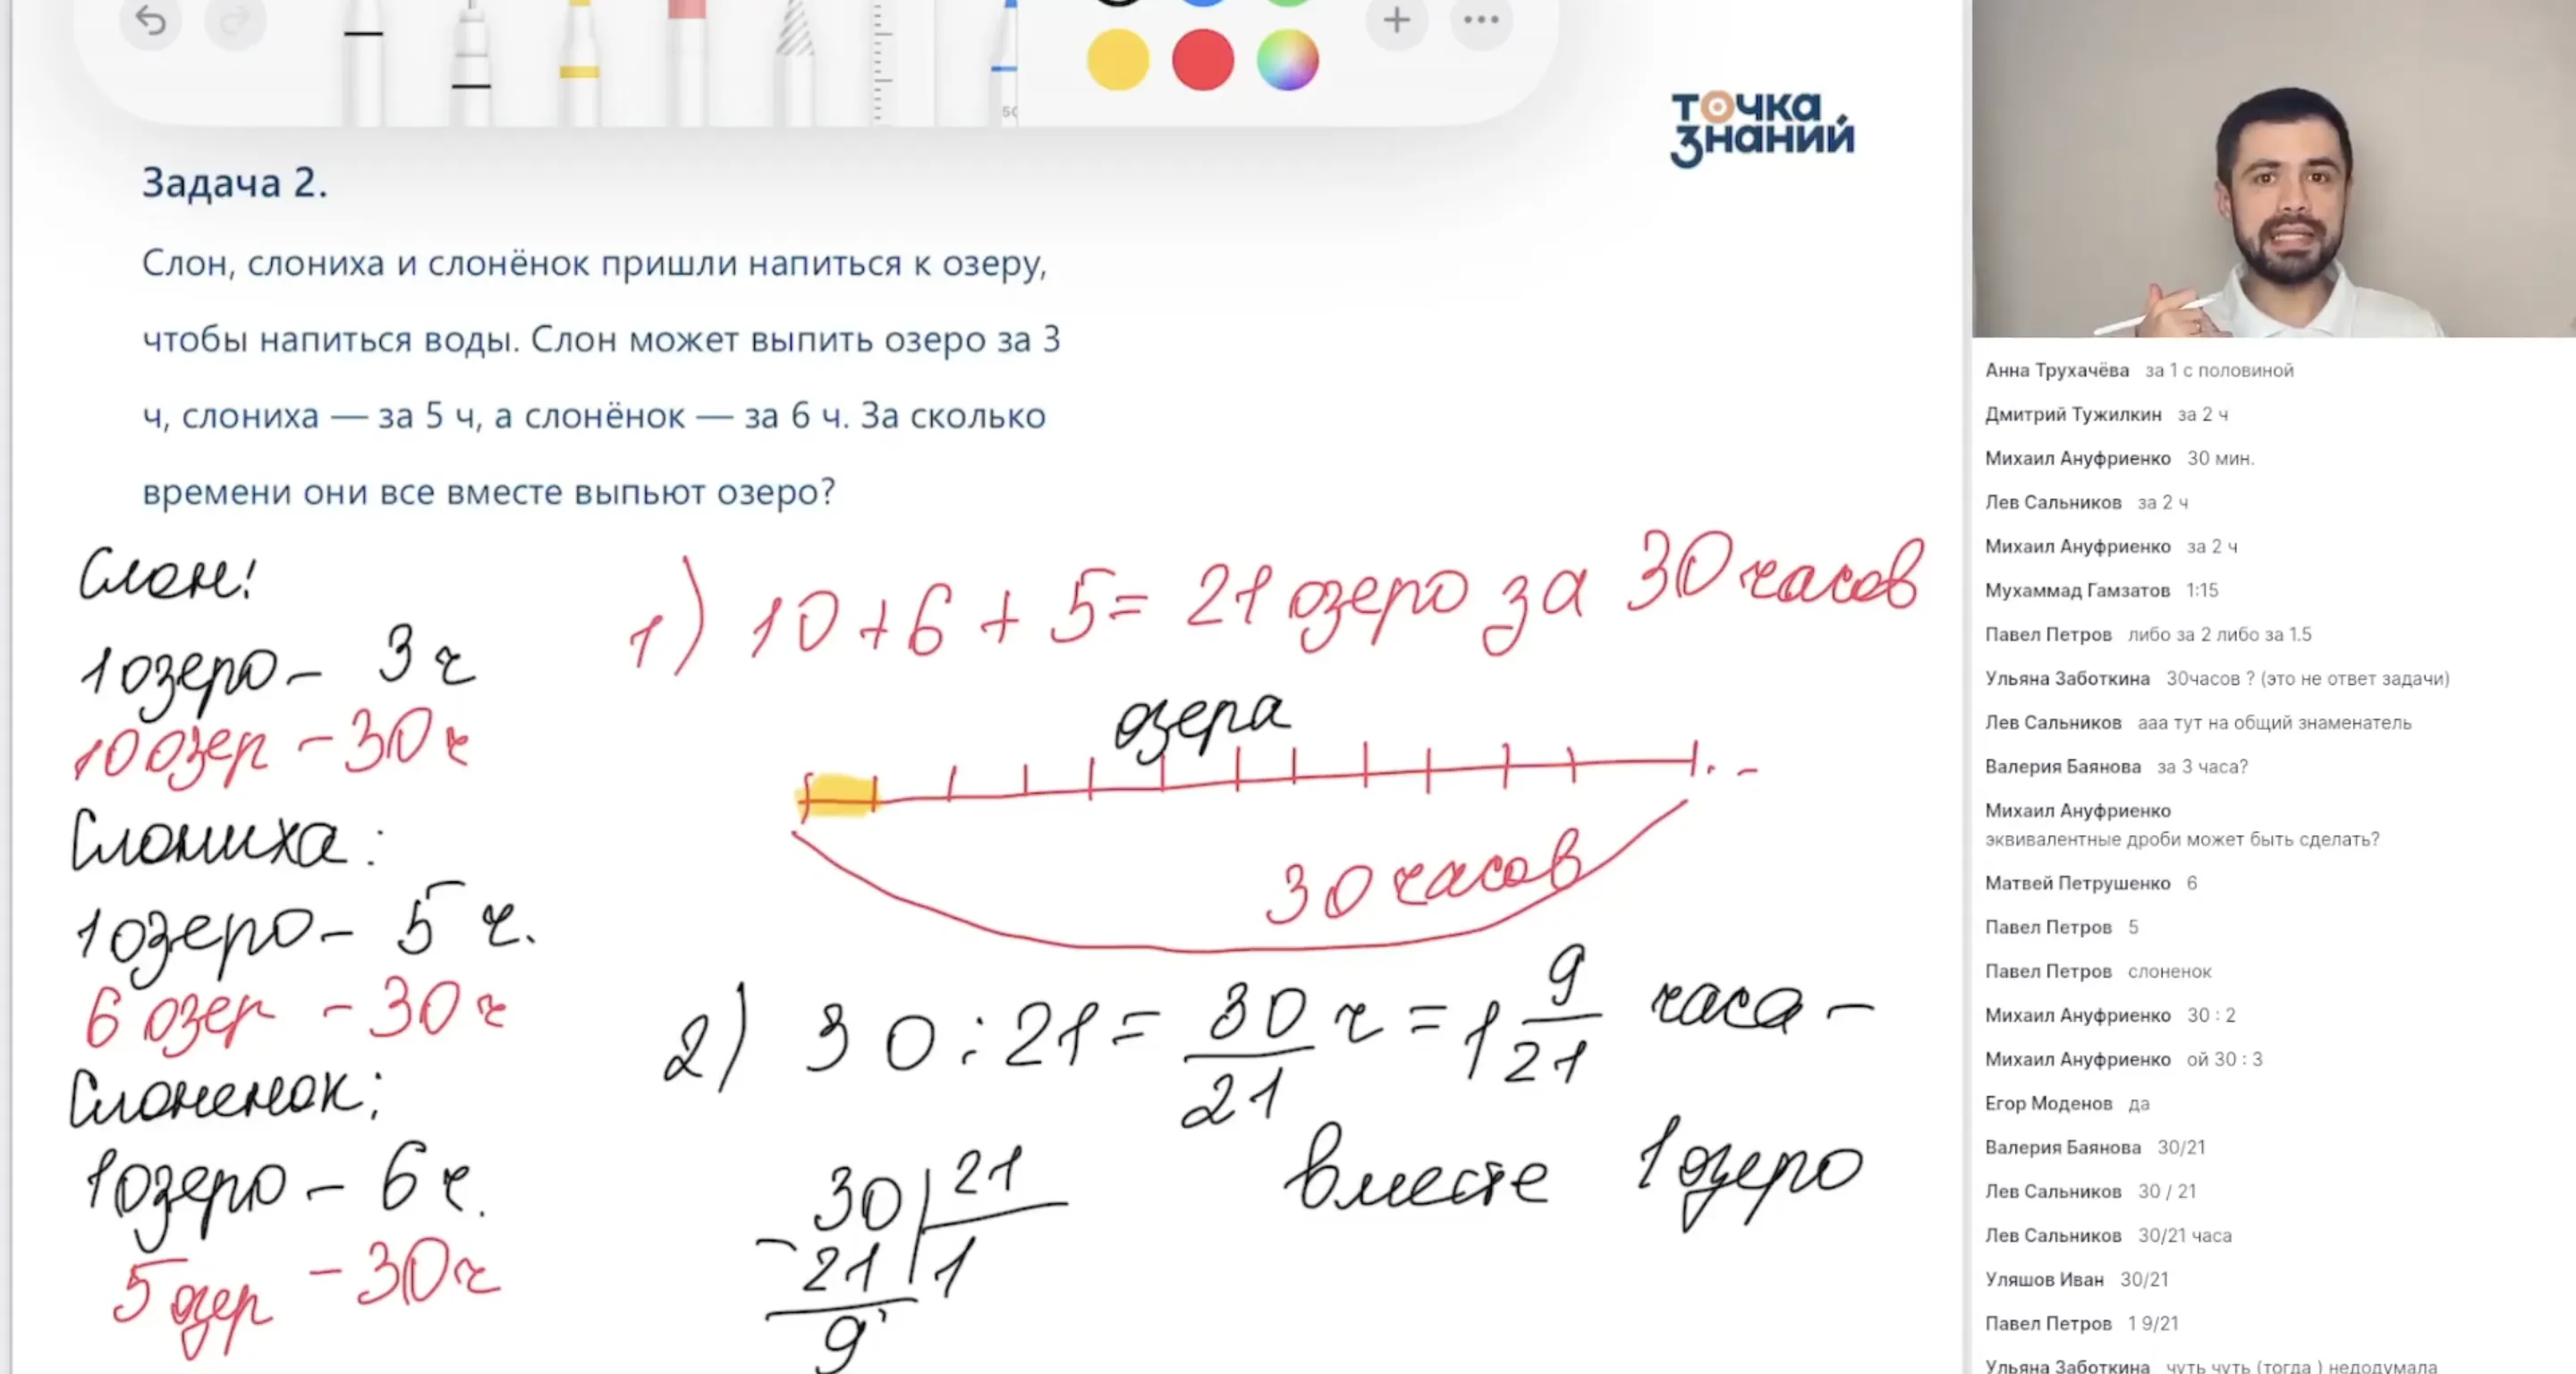 50
точка
знаний
Задача 2.
Слон, слониха и слонёнок пришли напиться к озеру,
чтобы напиться воды. Слон может выпить озеро за 3
ч, слониха — за 5 ч, а слонёнок — за 6 ч. За сколько
времени они все вместе выпьют озеро?
Слон:
1 озеро - 3 ч
10 озер - 30 ч
Слониха:
1 озеро - 5 ч.
6 озер - 30 ч
Слоненок:
1 озеро - 6 ч.
5 озер - 30 ч
1) 10 + 6 + 5 = 21 озеро за 30 часов
озера
30 часов
2) 30 : 21 = 30/21 ч = 1 9/21 часа -
вместе 1 озеро
30 | 21
- 21 | 1
9
Анна Трухачёва за 1 с половиной
Дмитрий Тужилкин за 2 ч
Михаил Ануфриенко 30 мин.
Лев Сальников за 2 ч
Михаил Ануфриенко за 2 ч
Мухаммад Гамзатов 1:15
Павел Петров либо за 2 либо за 1.5
Ульяна Заботкина 30часов ? (это не ответ задачи)
Лев Сальников ааа тут на общий знаменатель
Валерия Баянова за 3 часа?
Михаил Ануфриенко
эквивалентные дроби может быть сделать?
Матвей Петрушенко 6
Павел Петров 5
Павел Петров слоненок
Михаил Ануфриенко 30 : 2
Михаил Ануфриенко ой 30 : 3
Егор Моденов да
Валерия Баянова 30/21
Лев Сальников 30 / 21
Лев Сальников 30/21 часа
Уляшов Иван 30/21
Павел Петров 1 9/21
Ульяна Заботкина чуть чуть (тогда ) недодумала